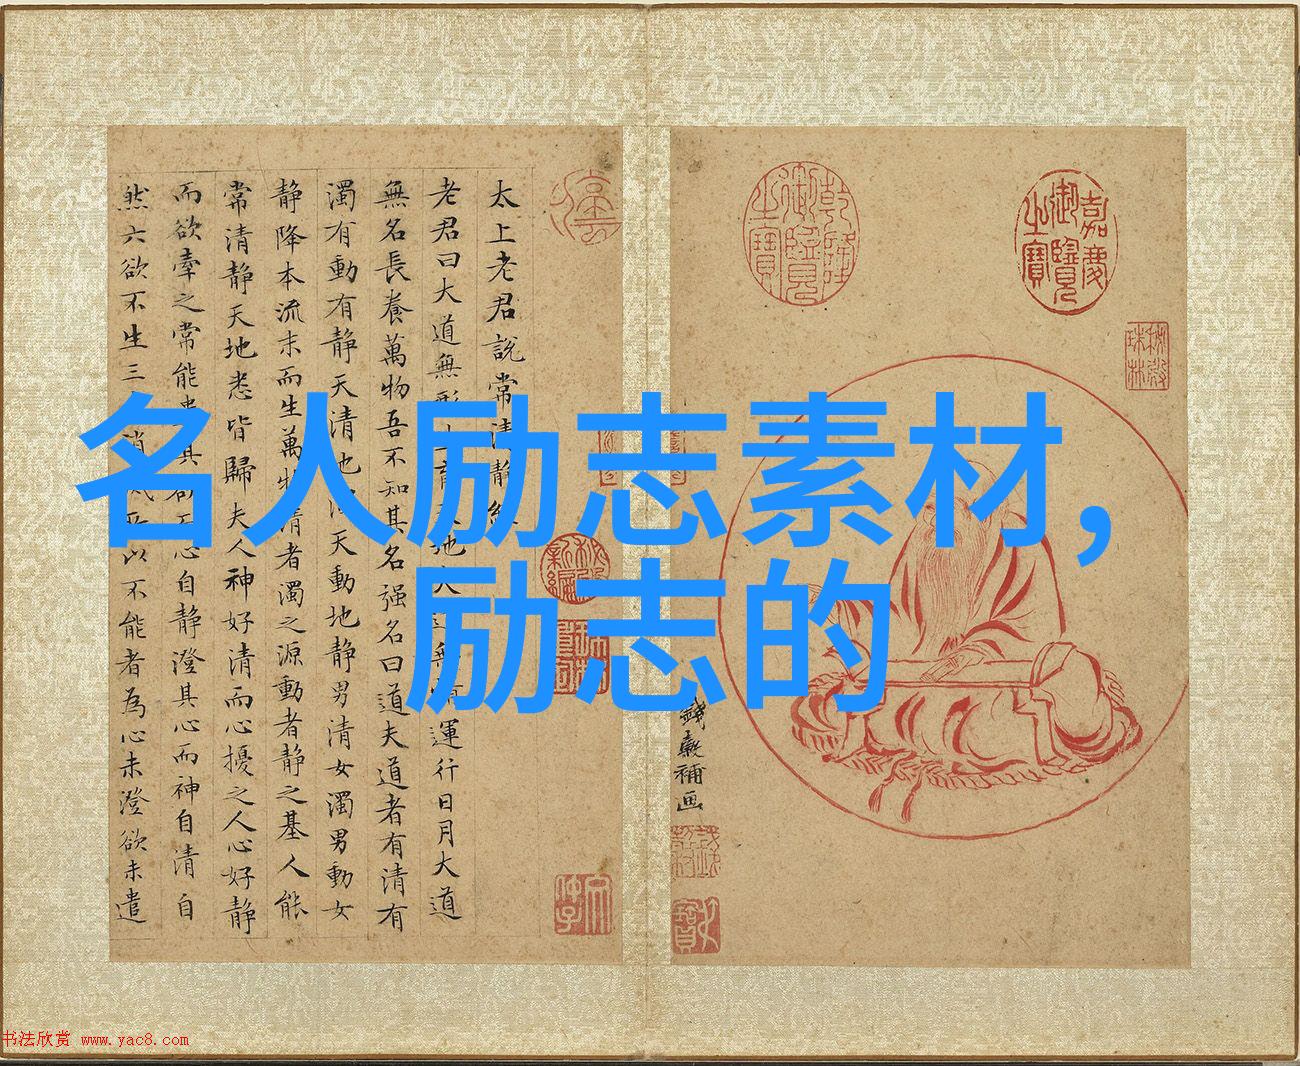 名人励志素材,
励志的
嘉慶御覽之寶
乾隆御覽之寶
錢穀補画
太上老君説常清静經
老君曰大道無形生育天地大道無情運行日月大道
無名長養萬物吾不知其名强名曰道夫道者有清有
濁有動有静天清地濁天動地静男清女濁男動女
静降本流末而生萬物清者濁之源動者静之基人能
常清静天地悉皆歸夫人神好清而心擾之人心好静
而欲牽之常能遣其欲而心自静澄其心而神自清自
然六欲不生三消以不能者為心未澄欲未遣
书法欣赏 www.yac8.com